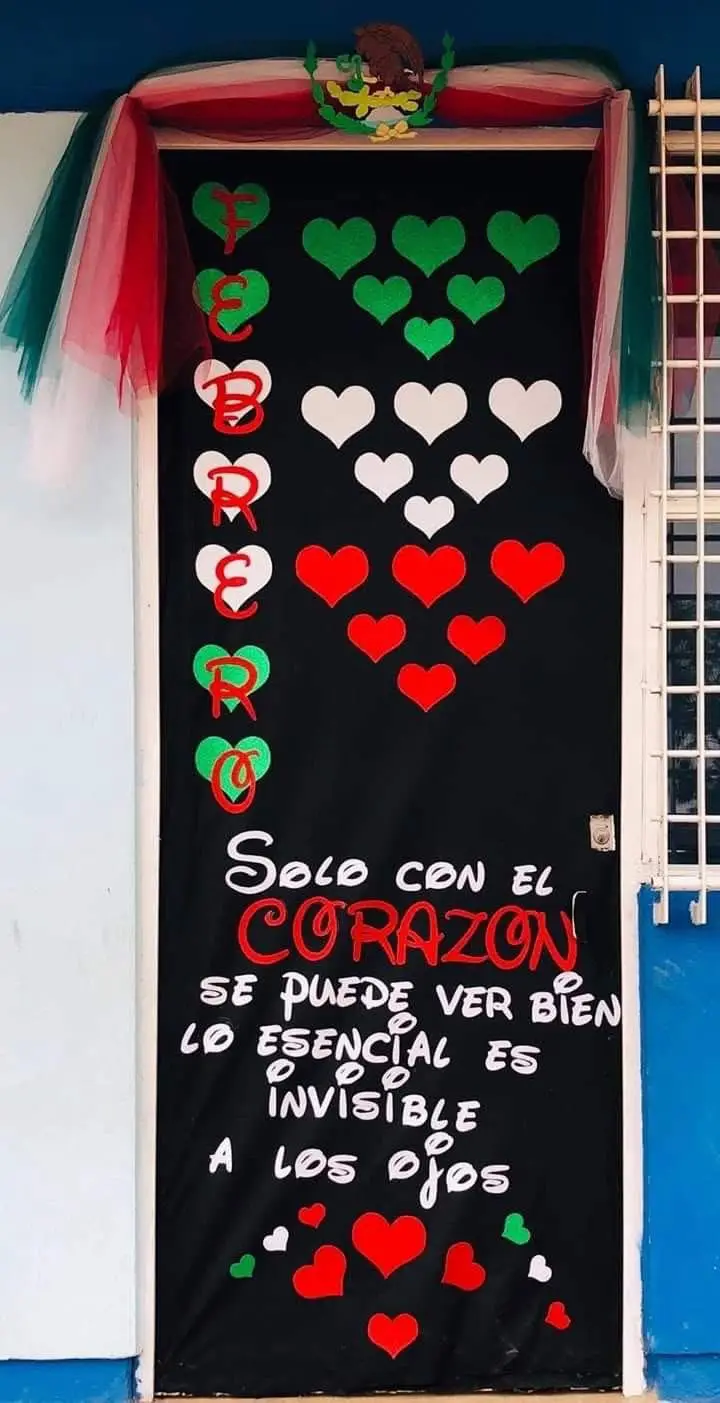 FEBRERO
SOLO CON EL
CORAZON
SE PUEDE VER BIEN
LO ESENCIAL ES
INVISIBLE
A LOS OJOS